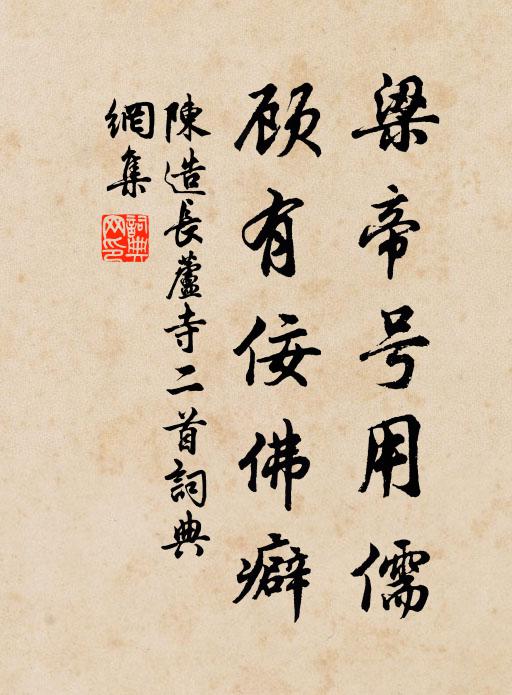 梁帝号用儒
顾有佞佛癖
陳造長蘆寺二首詞典
網集
詞典
网印